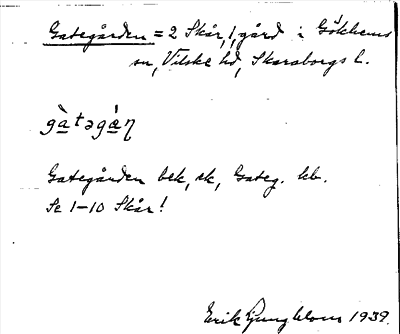 Gategården = 2 Skår, 1, gård i Gökhems
sn, Vilske hd, Skaraborgs l.
gàtəgá̀n
Gategården bek, ek, Gateg. kb.
Se 1-10 Skår!
Erik Ljungblom 1939.